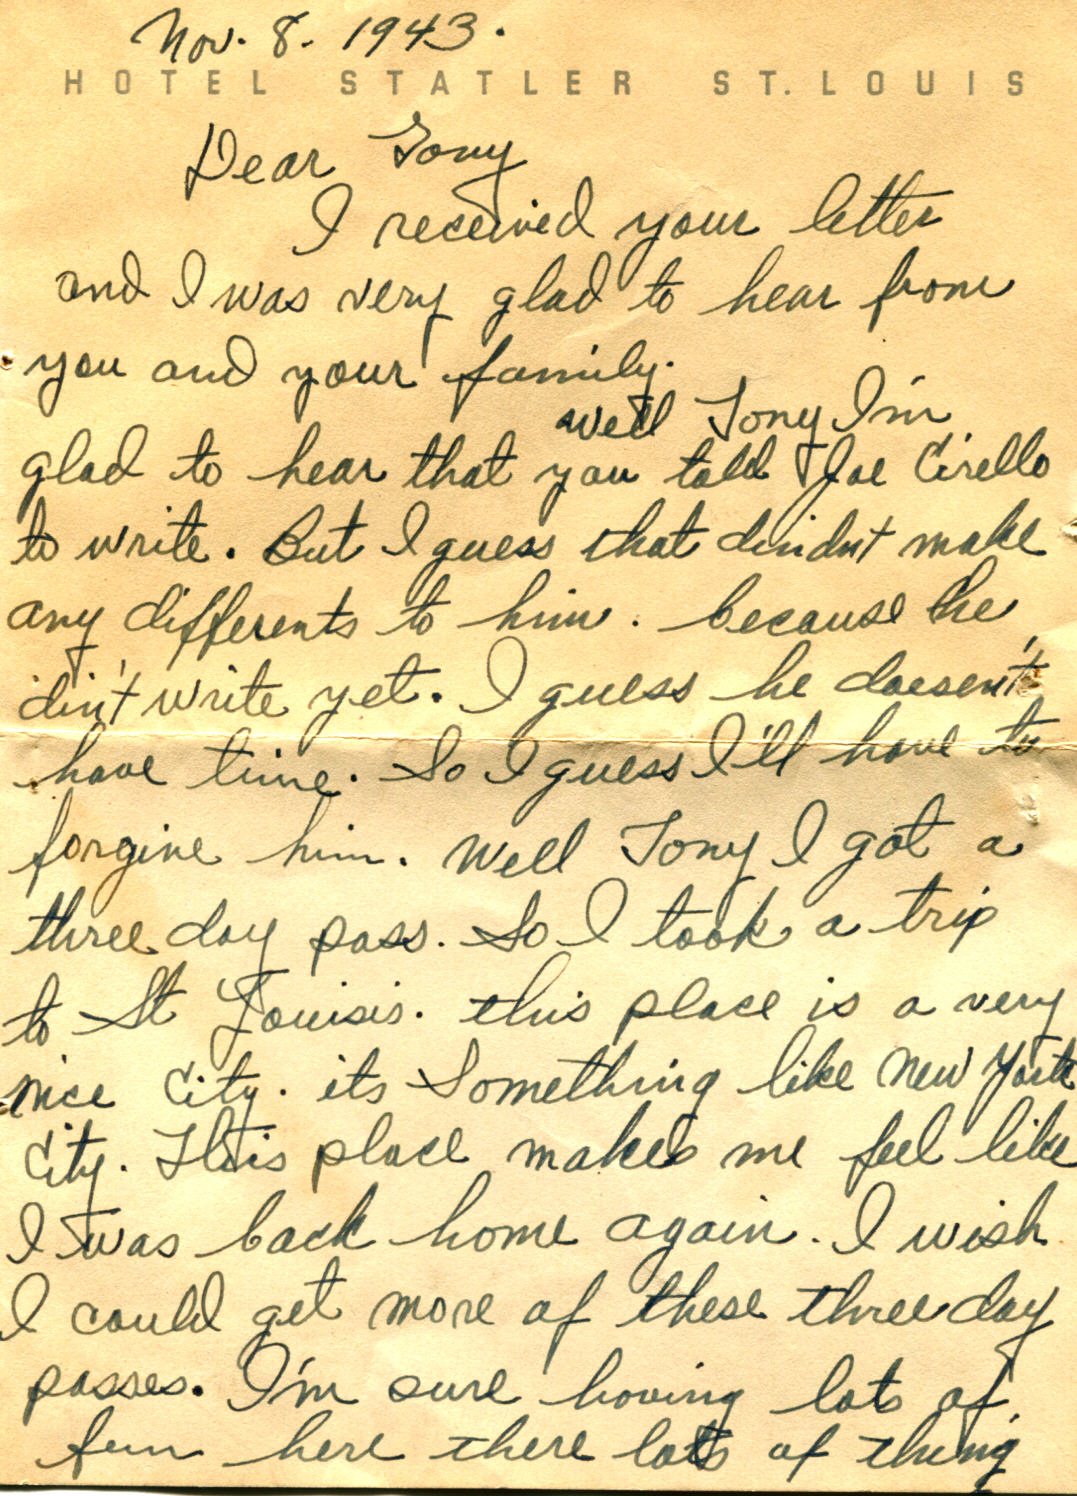 Nov. 8. 1943.
HOTEL STATLER ST. LOUIS
Dear Tony
I received your letter
and I was very glad to hear from
you and your family.
Well Tony I'm
glad to hear that you told Joe Cirello
to write. But I guess that dindnt make
any differents to him. because he
din't write yet. I guess he doesen't
have time. So I guess I'll have to
forgive him. Well Tony I got a
three day pass. So I took a trip
to St Louisis. this place is a very
nice City. its Something like New York
City. This place makes me feel like
I was back home again. I wish
I could get more of these three day
passes. I'm sure having lots of
fun here there lots of thing